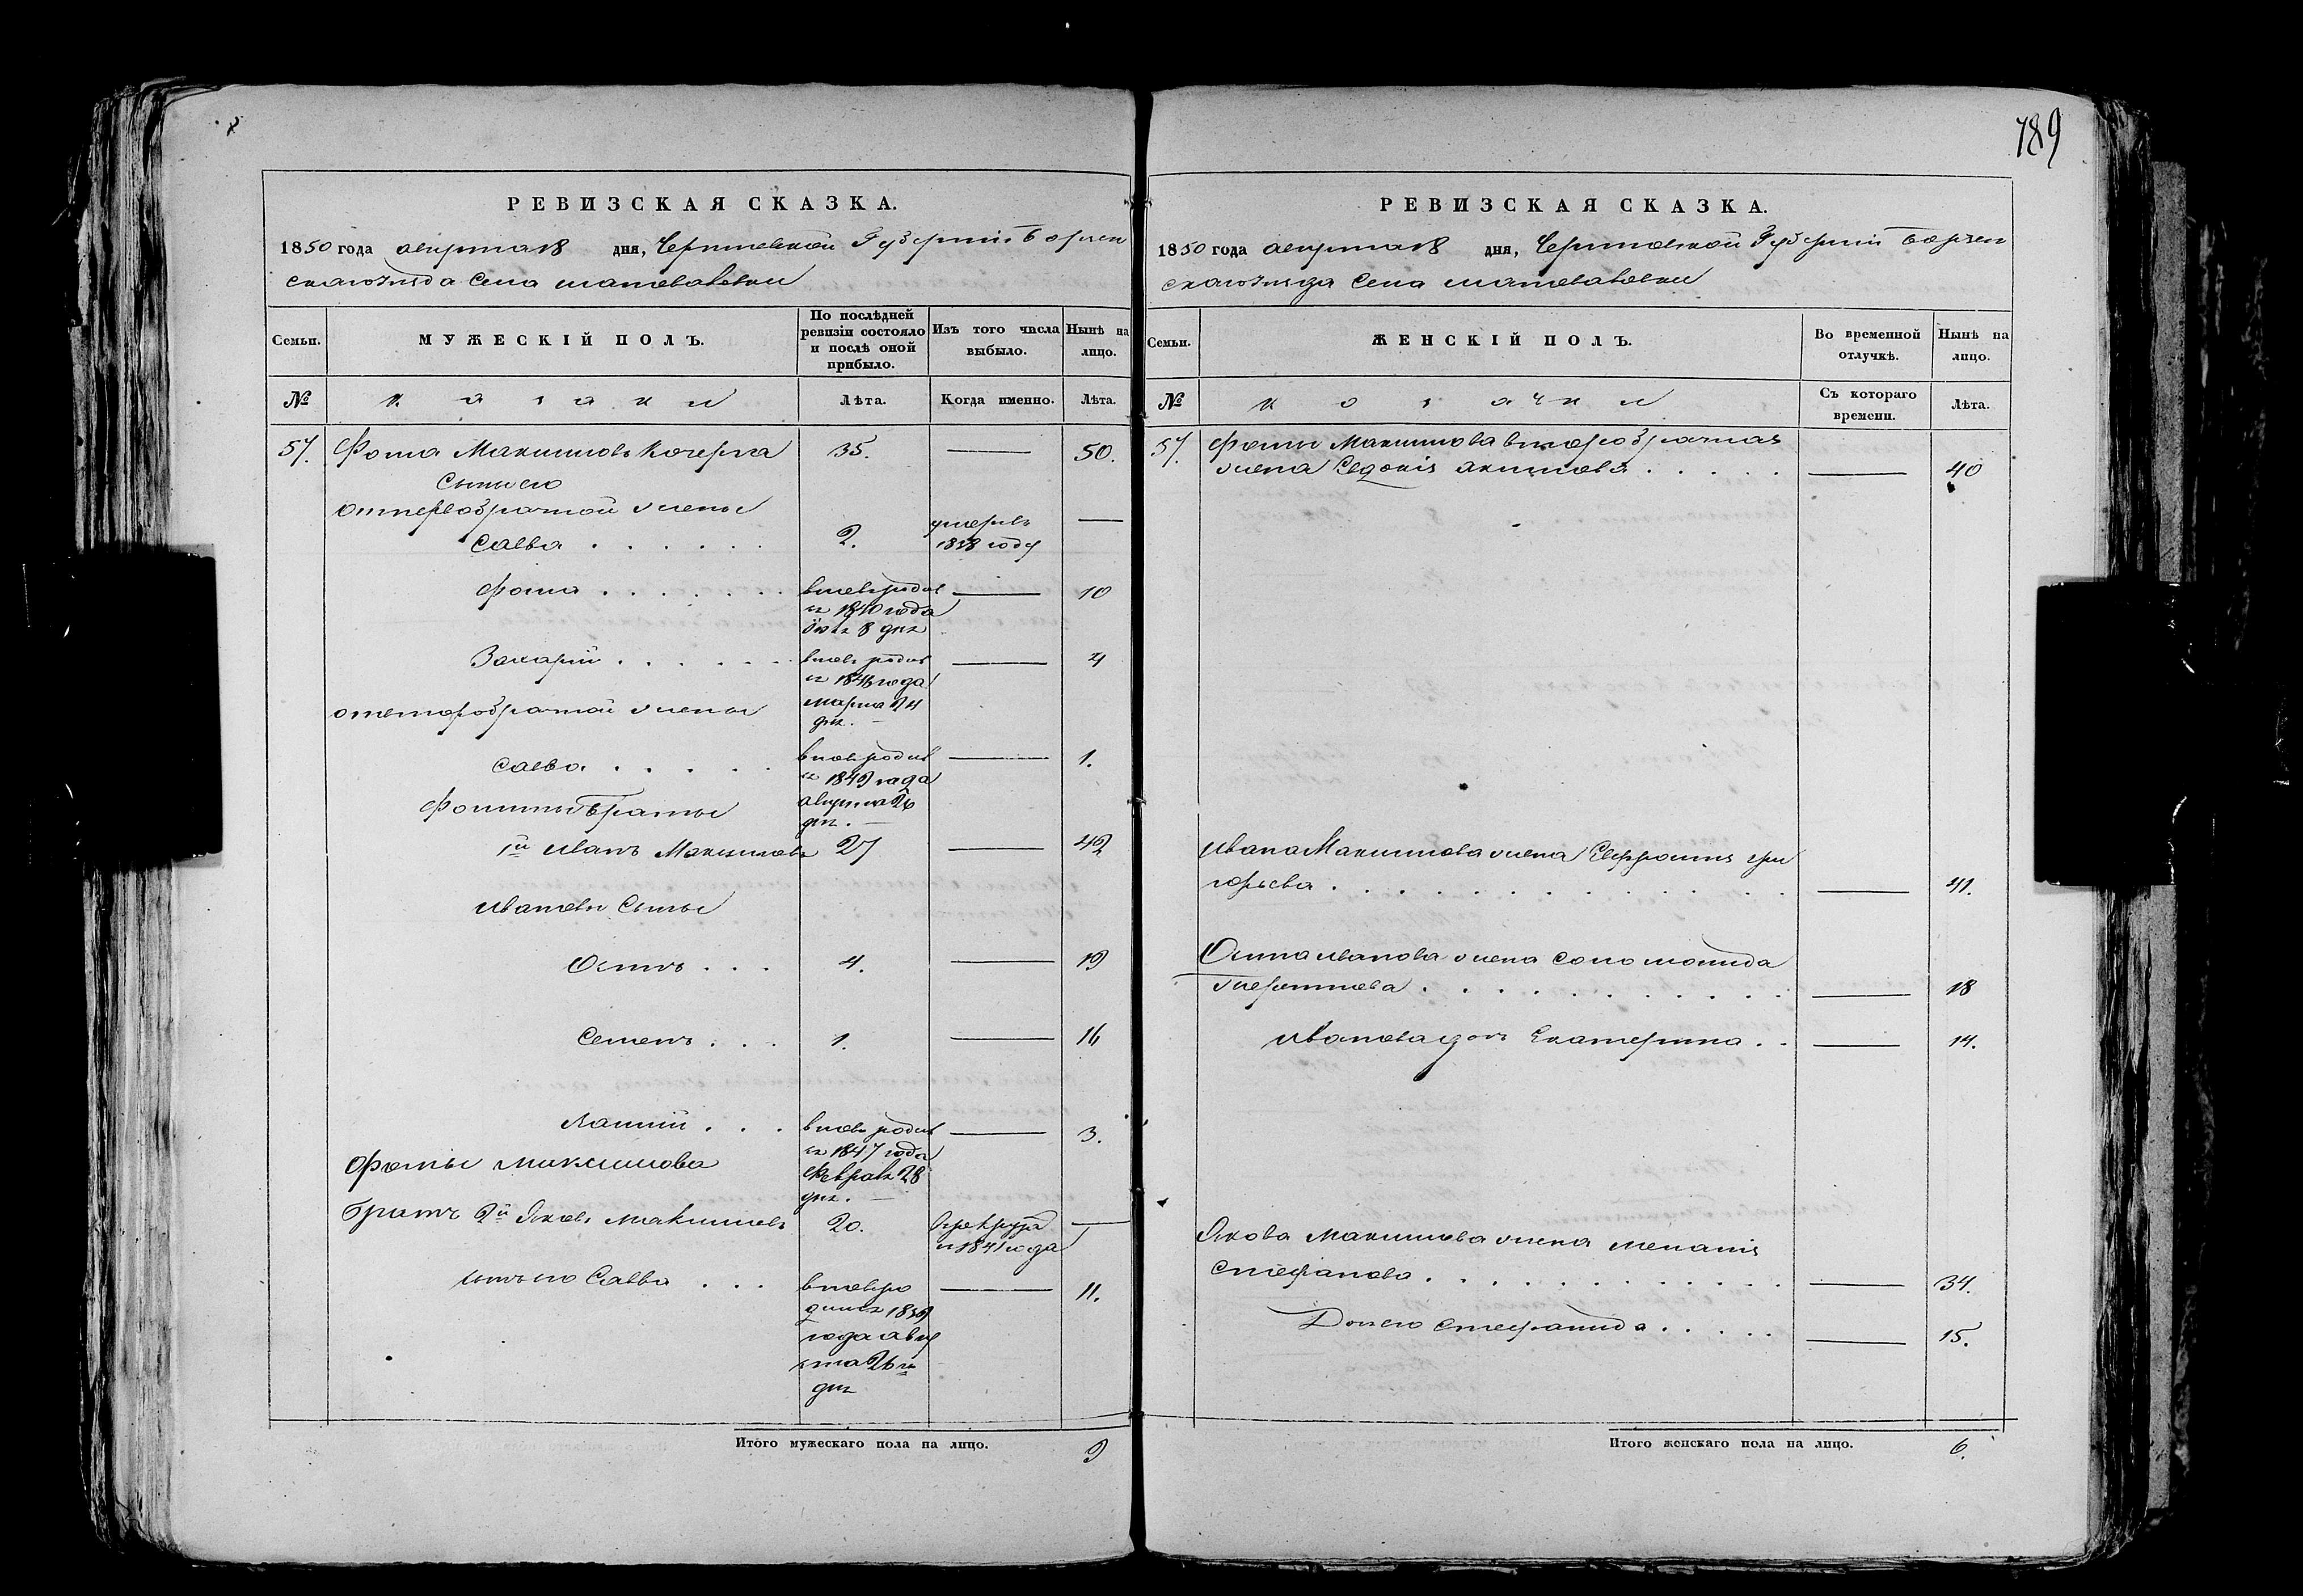 РЕВИЗСКАЯ СКАЗКА.
1850 года августа 18 дня, Черниговской Губерніи Борзен
скаго уезда Села
МУЖЕСКІЙ ПОЛЪ.
Семьи.
По послѣдней ревизіи состояло и послѣ оной прибыло.
Изъ того числа выбыло.
Нынѣ на лицо.
№ казаки Лѣта. Когда именно. Лѣта.
57. Фома Максимовъ Кочерга 35. — 50.
Сыны его
отпервобрачной жены
Савва . . . . . . 2. умеръ 1838 году —
Фома . . . . . . . вновь родил
ся 1840 года
8 дня — 10
Захарій . . . . . . вновь родил
ся 1846 года
марта 24
дня. — 4
отвторобрачной жены
Савва . . . . . вновь родил
ся 1849 года
августа 26
дня. — 1.
Фомины братья
1й Иванъ Максимовъ 27 — 42
Ивановы Сыны
Осипъ . . . 4. — 19
Семенъ . . . 1. — 16
. . . вновь родил
ся 1847 года
Февраля 28
дня. — 3.
Фомы Максимова
братъ 2й Яковъ Максимовъ 20. рекрута
1841 года —
сынъ его Савва . . . вновь ро
дился 1839
года авгу
ста 26го
дня — 11.
Итого мужескаго пола на лицо. 9
189
РЕВИЗСКАЯ СКАЗКА.
1850 года августа 18 дня, Черниговской Губерніи Борзен
скаго уезда Села
Семьи.
ЖЕНСКІЙ ПОЛЪ.
Во временной отлучкѣ.
Нынѣ на лицо.
№ козачки Съ котораго времени. Лѣта.
57. Фомы Максимова второбрачная
жена Евдокія Акимова . . . . . — 40
Ивана Максимова жена Евфросинія Гри
горьева . . . . . . . . . . . — 41.
Осипа Иванова жена Соломонида
Терентіева . . . . . . . . . . — 18
Иванова дочь Екатерина . . — 14.
Якова Максимова жена Меланія
Стефанова . . . . . . . . . . — 34.
Дочь его Степанида . . . . . — 15.
Итого женскаго пола на лицо. 6.